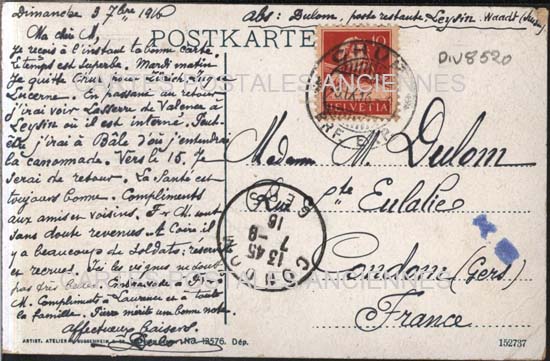 Dimanche 3 7bre 1916
abs: Dulom, poste restante Leysin, Waadt (Suisse)
POSTKARTE
Ma chère M,
Je reçois à l'instant ta bonne carte.
Le temps est superbe. Mardi matin
Je quitte Chur pour Zürich, Zug et
Lucerne. En passant au retour
j'irai voir Lasserre de Valence à
Leysin où il est interné. Peut-
être j'irai à Bâle d'où j'entendrai
la canonnade. Vers le 15, Je
serai de retour. La santé est
toujours bonne. Compliments
aux amis et voisins. F et M. sont
sans doute revenus. A Coire il
y a beaucoup de soldats; réserve
et recrues. Ici les vignes
M. Compliments à Laurence et à toute
la famille. Pierre mérite un bonne note.
Affectueux baisers.
10
HELVETIA
CHUR
DIV8520
Madame M. Dulom
Rue Ste Eulalie
Condom (Gers)
France
CONDOM
13 45
7 -9
16
GERS
CARTES POSTALES ANCIENNES
CARTES POSTALES ANCIENNES
No. 12576. Dép.
152737